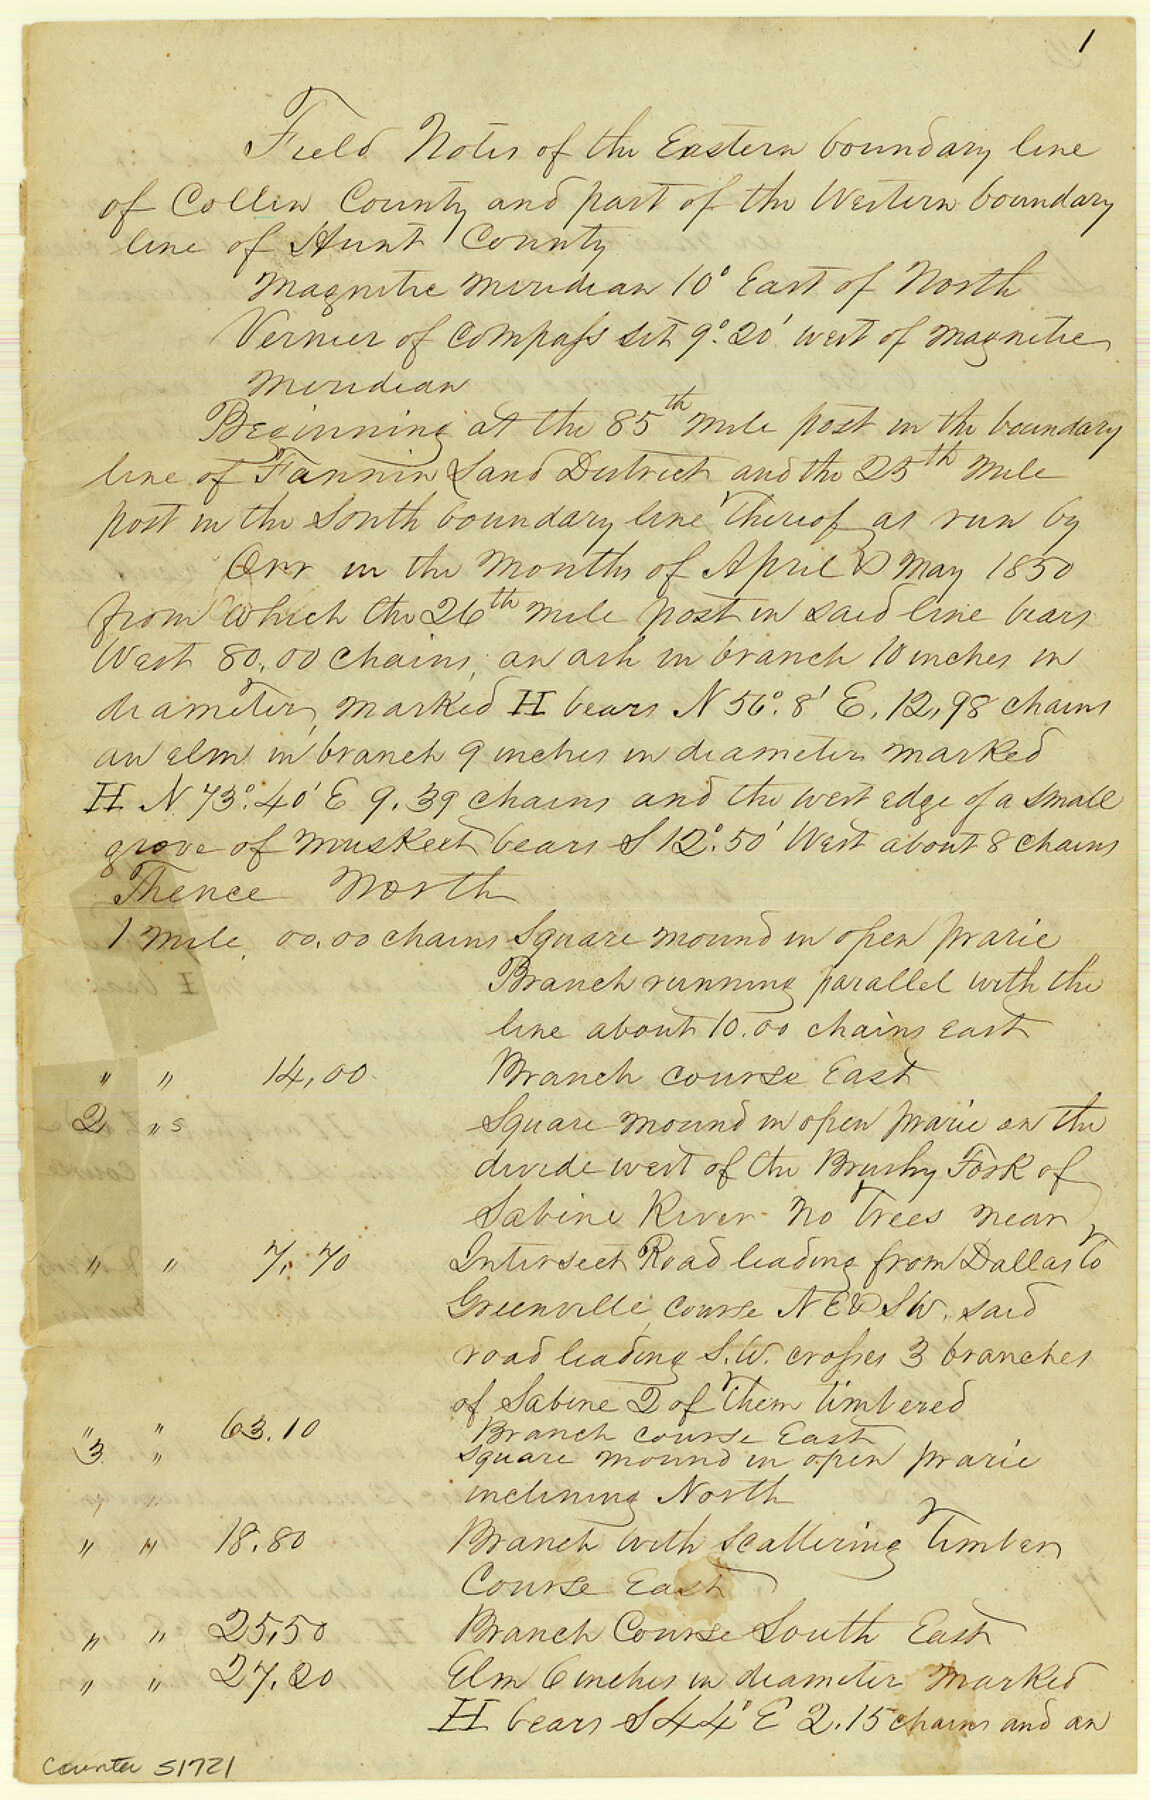 1
Field Notes of the Eastern boundary line
of Collin County and part of the Western boundary
line of Hunt County
Magnetic Meridian 10° East of North
Vernier of Compass set 9°.20' west of Magnetic
Meridian
Beginning at the 85th Mile post in the boundary
line of Fannin Land District and the 25th Mile
post in the South boundary line thereof as run by
Orr in the Months of April & May 1850
from which the 26th mile post in said line bears
West 80.00 chains, an ash in branch 10 inches in
diameter, marked H bears N 56°.8' E. 12,98 chains
an elm in branch 9 inches in diameter marked
H N 73°.40' E 9.39 chains and the west edge of a small
grove of Muskeet bears S 12°.50' West about 8 chains
Thence North
1 Mile, 00.00 chains Square mound in open prarie
Branch running parallel with the
line about 10.00 chains east
" " 14,00 Branch course East
2 "s Square mound in open prarie on the
divide west of the Brushy Fork of
Sabine River No Trees near
" " 7.70 Intersect Road leading from Dallas to
Greenville, course N E & S W. said
road leading S.W. crosses 3 branches
of Sabine 2 of them timbered
" " 63.10 Branch course East
3 " Square mound in open prarie
" " inclining North
" " 18.80 Branch with scattering Timber
Course East
" " 25,50 Branch Course South East
" " 27.20 Elm 6 inches in diameter Marked
H bears S 44° E 2.15 chains and an
Counter 51721